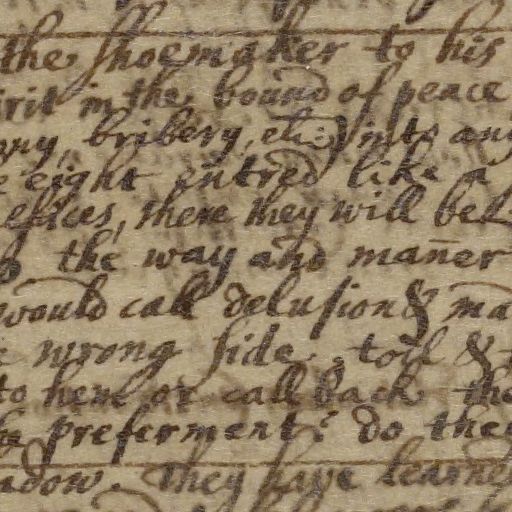 the shoemaker to his
irit in the bound of peace
bribery, etc:) into any
eight entred like a
efices, there they will be
the way and man̄er
would call delusion & ma
wrong side. toil &
to hem or call back the
preferment? do they
adow. They have learne